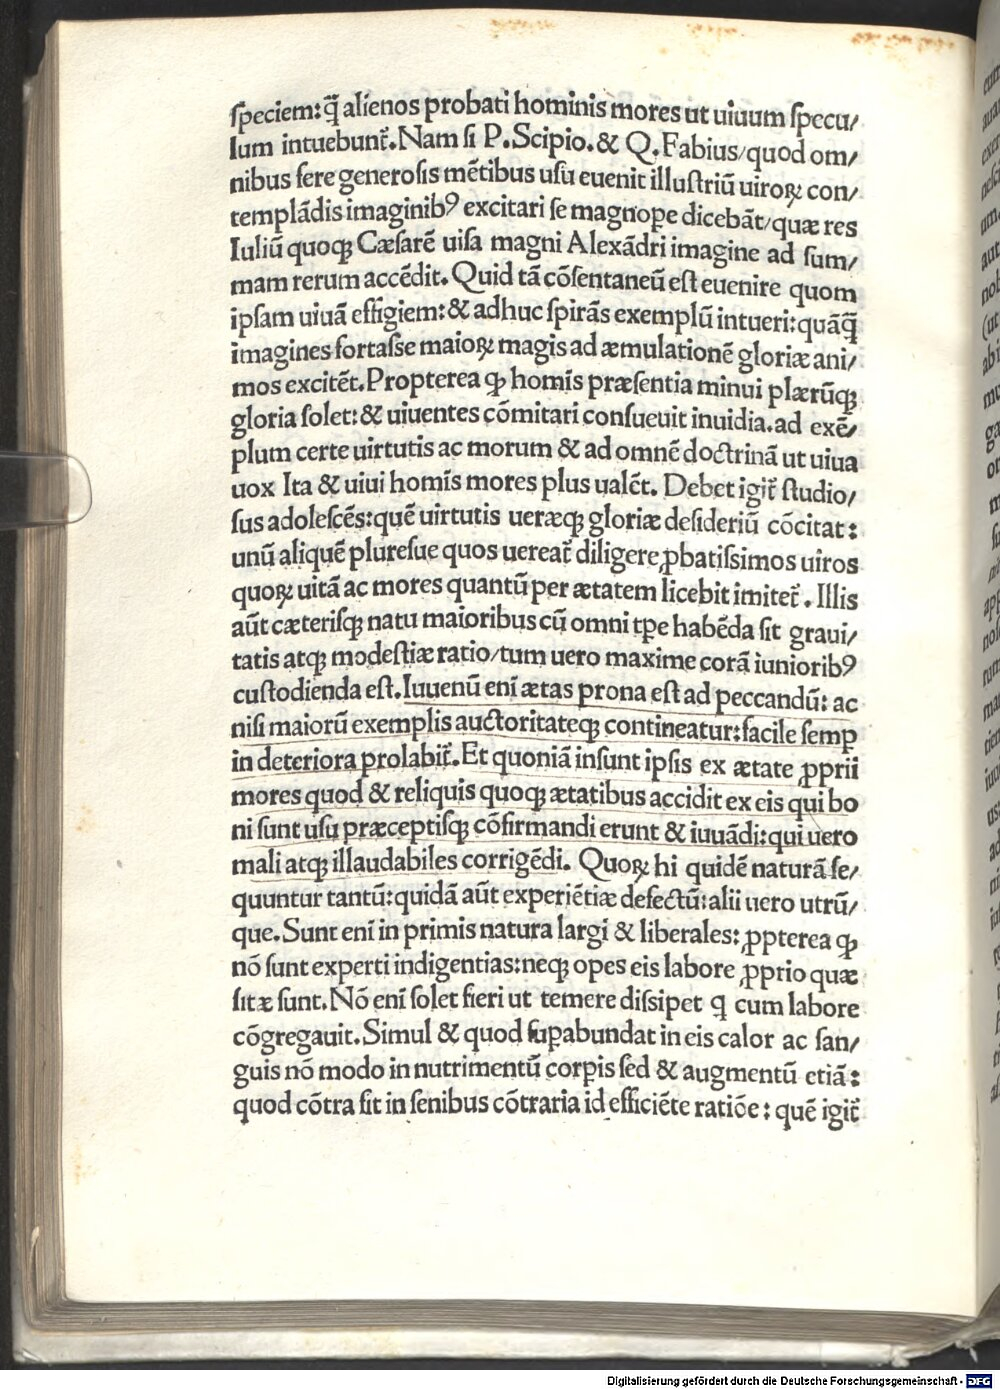 ſpeciem: q̃ alienos probati hominis mores ut uiuum ſpecu/
lum intuebunt̃. Nam ſi P. Scipio. & Q. Fabius/quod om/
nibus fere generoſis mẽtibus uſu euenit illuſtriũ uiroꝝ con/
templãdis imaginibꝰ excitari ſe magnoꝑe dicebãt/quæ res
Iuliũ quoqꝫ Cæſarẽ uiſa magni Alexãdri imagine ad ſum/
mam rerum accẽdit. Quid tã cõſentaneũ eſt euenire quom
ipſam uiuã effigiem: & adhuc ſpirãs exemplũ intueri: quãq̃
imagines fortaſſe maioꝝ magis ad æmulationẽ gloriæ ani/
mos excitẽt. Propterea ꝙ homĩs præſentia minui plærũqꝫ
gloria ſolet: & uiuentes cõmitari conſueuit inuidia. ad exẽ/
plum certe uirtutis ac morum & ad omnẽ doctrinã ut uiua
uox Ita & uiui homĩs mores plus ualẽt. Debet igit̃ ſtudio/
ſus adoleſcẽs: quẽ uirtutis ueræqꝫ gloriæ deſideriũ cõcitat:
unũ aliquẽ plureſue quos uereat̃ diligere ꝓbatiſsimos uiros
quoꝝ uitã ac mores quantũ per ætatem licebit imitet̃. Illis
aũt cæteriſqꝫ natu maioribus cũ omni tꝑe habẽda ſit graui/
tatis atqꝫ modeſtiæ ratio/tum uero maxime corã iuniorib9
cuſtodienda eſt. Iuuenũ enĩ ætas prona eſt ad peccandũ: ac
niſi maiorũ exemplis auctoritateqꝫ contineatur: facile ſemꝑ
in deteriora prolabit̃. Et quoniã inſunt ipſis ex ætate ꝓprii
mores quod & reliquis quoqꝫ ætatibus accidit ex eis qui bo
ni ſunt uſu præceptiſqꝫ cõfirmandi erunt & iuuãdi: qui uero
mali atqꝫ illaudabiles corrigẽdi. Quoꝝ hi quidẽ naturã ſe/
quuntur tantũ: quidã aũt experiẽtiæ defectũ: alii uero utrũ/
que. Sunt enĩ in primis natura largi & liberales: ꝓpterea ꝙ
nõ ſunt experti indigentias: neqꝫ opes eis labore ꝓprio quæ
ſitæ ſunt. Nõ enĩ ſolet fieri ut temere diſsipet q cum labore
cõgregauit. Simul & quod ſuꝑabundat in eis calor ac ſan/
guis nõ modo in nutrimentũ corꝑis ſed & augmentũ etiã:
quod cõtra ſit in ſenibus cõtraria id efficiẽte ratiõe: quẽ igit̃
Digitalisierung gefördert durch die Deutsche Forschungsgemeinschaft - DFG